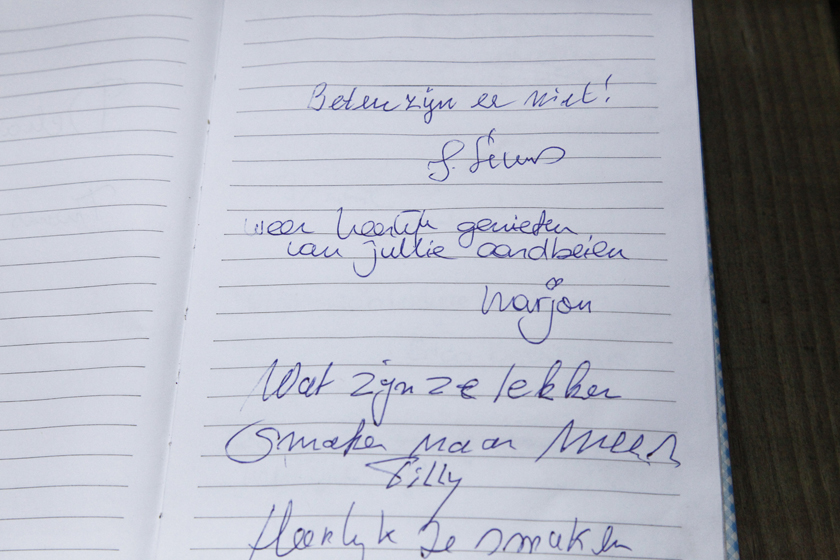 Beter zijn er niet!
weer heerlijk genieten
van jullie aardbeien
Marjon
Wat zijn ze lekker
Smaken naar meer
Tilly
Heerlijk ze smaken